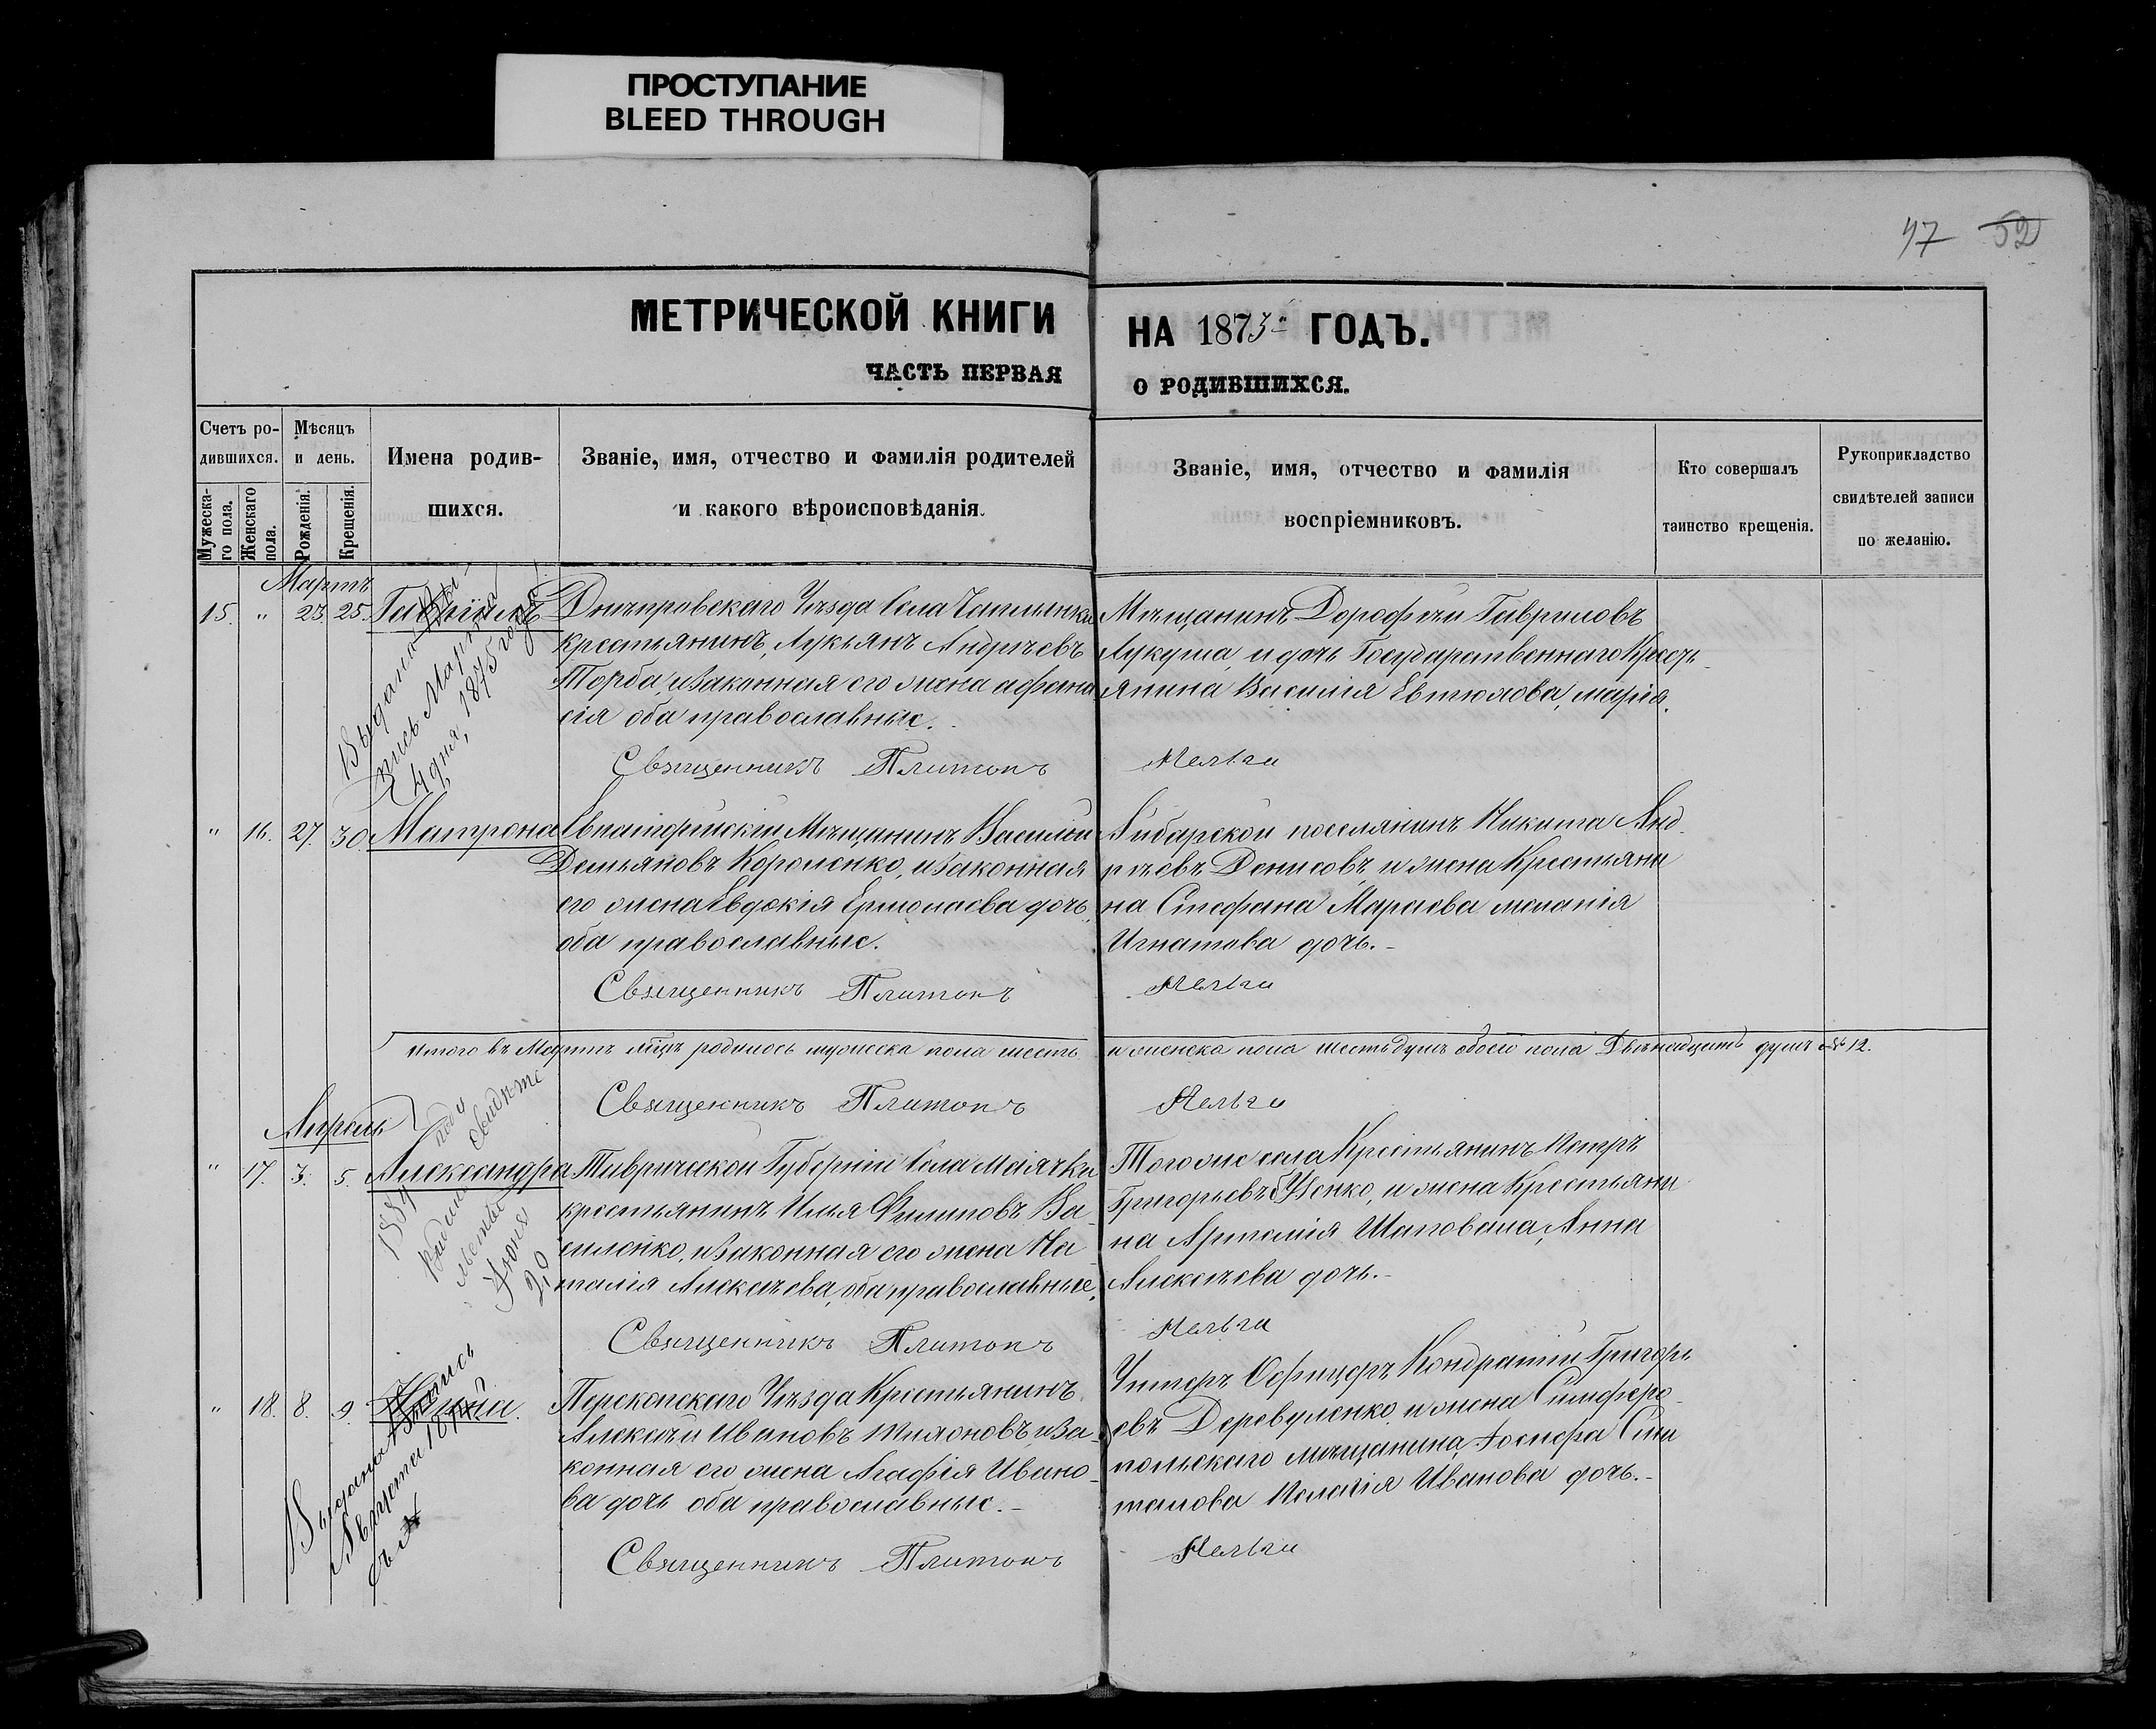 ПРОСТУПАНИЕ
BLEED THROUGH
47 52
МЕТРИЧЕСКОЙ КНИГИ
НА 1873 ГОДЪ.
ЧАСТЬ ПЕРВАЯ
О РОДИВШИХСЯ.
Счетъ ро-
дившихся.
Мужеска-
го пола.
Женскаго
пола.
Мѣсяцъ
и день.
Рожденія.
Крещенія.
Имена родив-
шихся.
Званіе, имя, отчество и фамилія родителей
и какого вѣроисповѣданія.
Званіе, имя, отчество и фамилія
воспріемниковъ.
Кто совершалъ
таинство крещенія.
Рукоприкладство
свидѣтелей записи
по желанію.
Мартъ
15. " 23. 25. Гавріилъ
Днѣпровскаго Уѣзда Села Чаплынки
крестьянинъ, Лукьянъ Андрѣевъ
Торба, изаконная его жена афана
сія оба православные.
Священникъ Платонъ
Мѣщанинъ Дорофѣй Гавриловъ
Лукуша, и дочь Государственнаго Кресть
янина Василія Евтюхова, марія.
4 дня, 1875 года
" 16. 27. 30. Матрона
Евпаторійскій Мѣщанинъ Василій
Демьяновъ Короленко, изаконная
его жена Евдокія Ермолаева дочь,
оба православные.
Священникъ Платонъ
поселянинъ Никита Анд
рѣевъ Денисовъ и жена Крестьяни
на Стефана Мараева меланія
Игнатова дочь.-
Итого въ Мартѣ мцѣ родилось мужеска пола шесть и женска пола шесть душъ обоего пола Двѣнадцать душъ 12.
Священникъ Платонъ
Апрель
" 17. 3. 5. Александра
Таврической Губерніи Села Маячки
крестьянинъ Илья Филиповъ Ва
силенко, изаконная его жена На
талія Алексѣева, оба православные.
Священникъ Платонъ
Тогоже села Крестьянинъ Петръ
Григорьевъ и жена Крестьяни
на Артемія Шаповала, Анна
Алексѣева дочь.-
1884
Іюня
20
" 18. 8. 9.
Перекопскаго Уѣзда Крестьянинъ
Алексѣй Ивановъ иза
конная его жена Агафія Ивано
ва дочь оба православные.-
Священникъ Платонъ
Унтеръ Офицеръ, Кондратій Григорь
евъ Деревуленко, и жена Симферо
польскаго мѣщанина, Іосифа
Пелагія Иванова дочь.-
Выдана
Августа